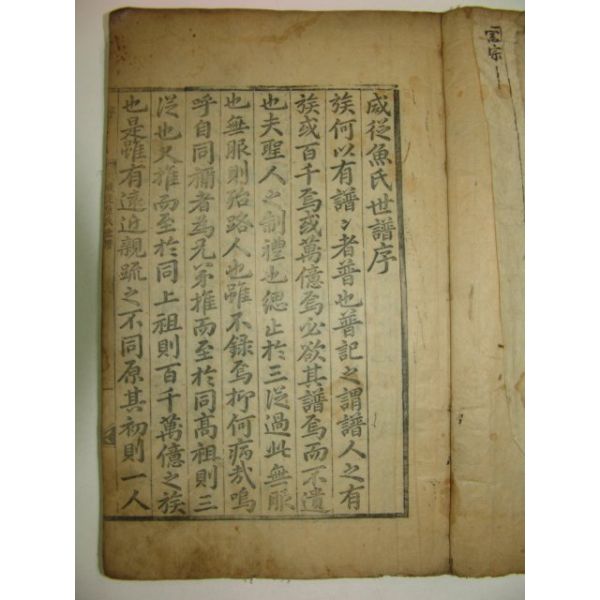 咸從魚氏世譜序
族何以有譜〻者普也普記之謂譜人之有
族或百千焉或萬億焉必欲其譜焉而不遺
也夫聖人之制禮也緦止於三從過此無服
也無服則殆路人也雖不錄焉抑何病哉嗚
呼自同禰者為兄弟推而至於同高祖則三
從也又推而至於同上祖則百千萬億之族
也是雖有遠近親疏之不同原其初則一人